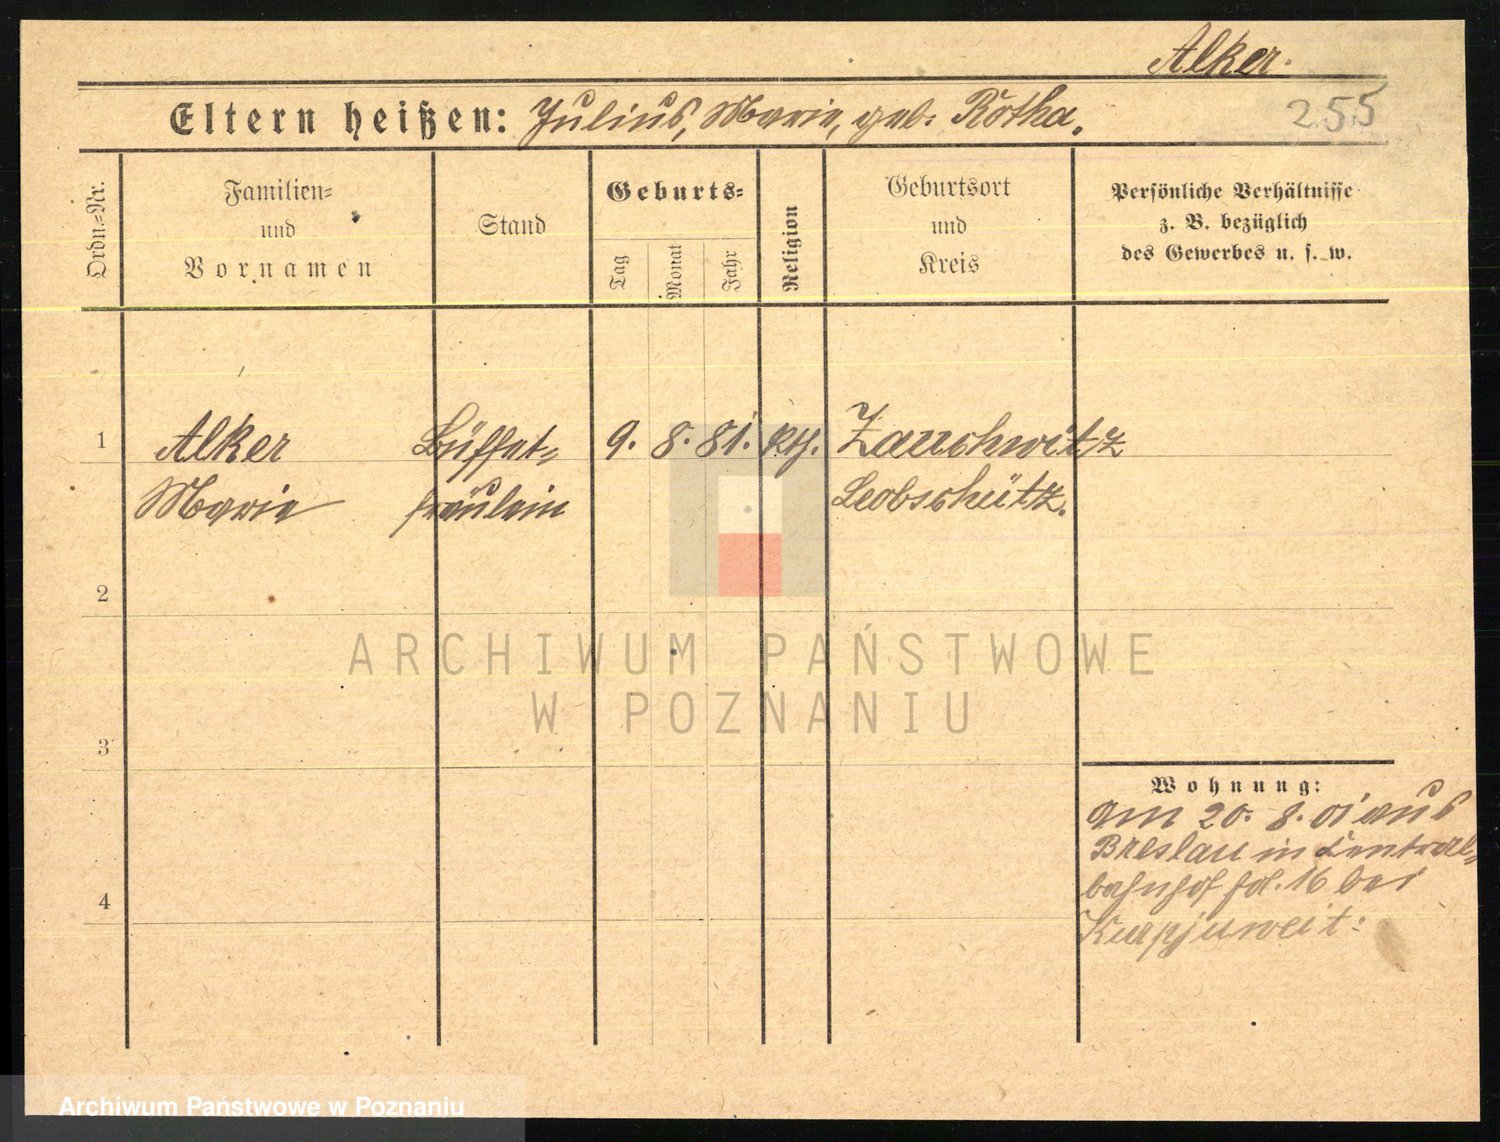 Alker.
255
Eltern heißen: Julius, Marie, geb. Rotha.
Ordn.=Nr.
Familien=
und
Vornamen
Stand
Geburts=
Tag
Monat
Jahr
Religion
Geburtsort
und
Kreis
Persönliche Verhältnisse
z. B. bezüglich
des Gewerbes u. s. w.
1 Alker Büffet= 9. 8. 81. kth. Zauchwitz
Marie fräulein Leobschütz.
2
ARCHIWUM PAŃSTWOWE
W POZNANIU
3
Wohnung:
am 20. 8. 01 aus
Breslau in Central=
bahnhof fol. 16 bei
Kurpjuweit:
4
Archiwum Państwowe w Poznaniu